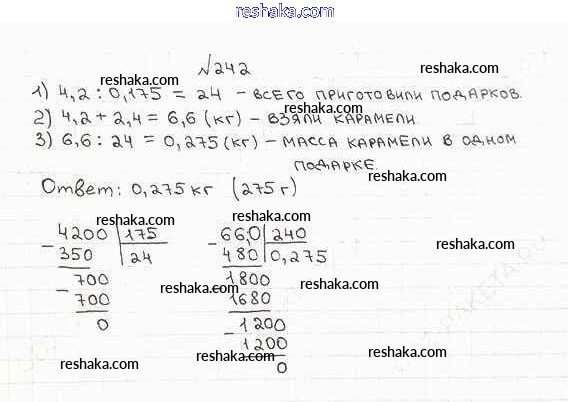 reshaka.com
№242
reshaka.com
reshaka.com
1) 4,2 : 0,175 = 24 - ВСЕГО ПРИГОТОВИЛИ ПОДАРКОВ.
reshaka.com
reshaka.com
2) 4,2 + 2,4 = 6,6 (кг) - ВЗЯЛИ КАРАМЕЛИ.
3) 6,6 : 24 = 0,275 (кг) - МАССА КАРАМЕЛИ В ОДНОМ
ПОДАРКЕ.
reshaka.com
Ответ: 0,275 кг (275 г)
reshaka.com
reshaka.com
- 4200 175
350 24
- 700
700
0
- 66,0 240
480 0,275
- 1800
1680
- 1200
1200
0
reshaka.com
reshaka.com
reshaka.com
reshaka.com
reshaka.com
reshaka.com